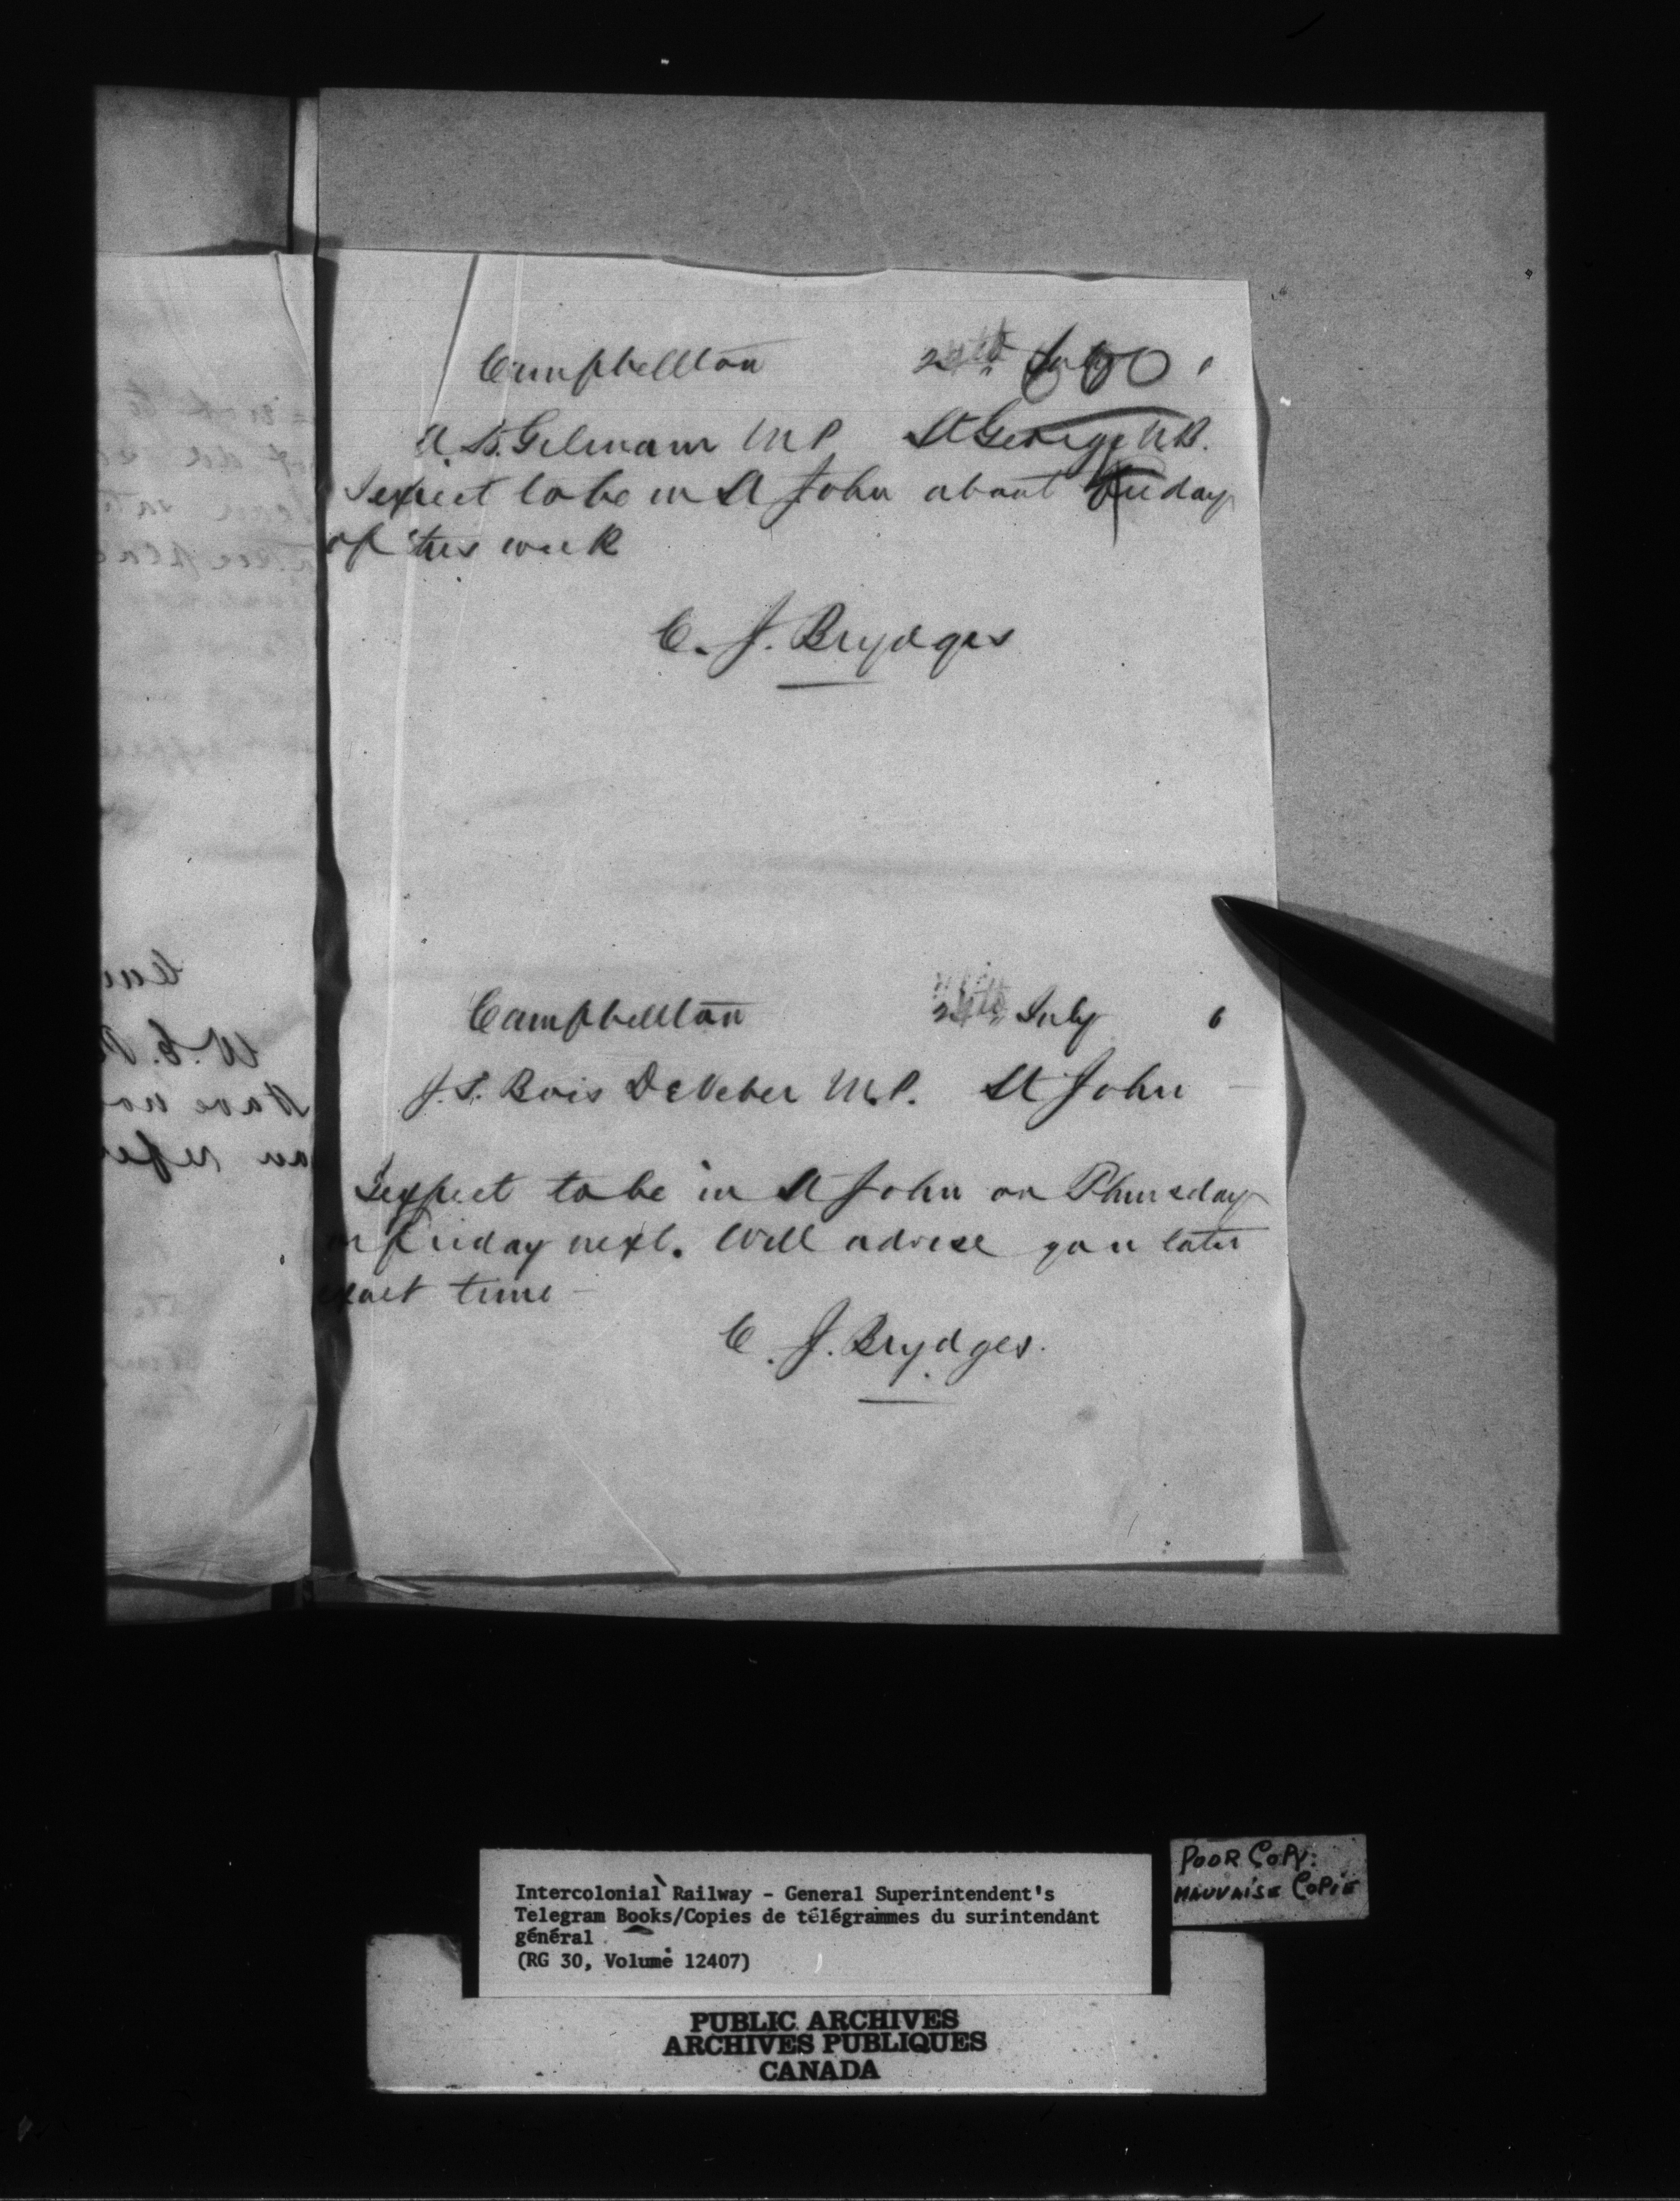 Campbellton 24th July 600 6
A. H. Gilmour M P St George N.B.
I expect to be in St John about Friday
of this week
C. J. Brydges
Campbellton 24th July 6
J. S. Bois DeVeber M.P. St John
I expect to be in St John on Thursday
or Friday next. Will advise you later
exact time
C. J. Brydges.
Intercolonial Railway - General Superintendent's
Telegram Books/Copies de télégrammes du surintendant
général
(RG 30, Volume 12407)
POOR COPY:
MAUVAISE COPIE
PUBLIC ARCHIVES
ARCHIVES PUBLIQUES
CANADA